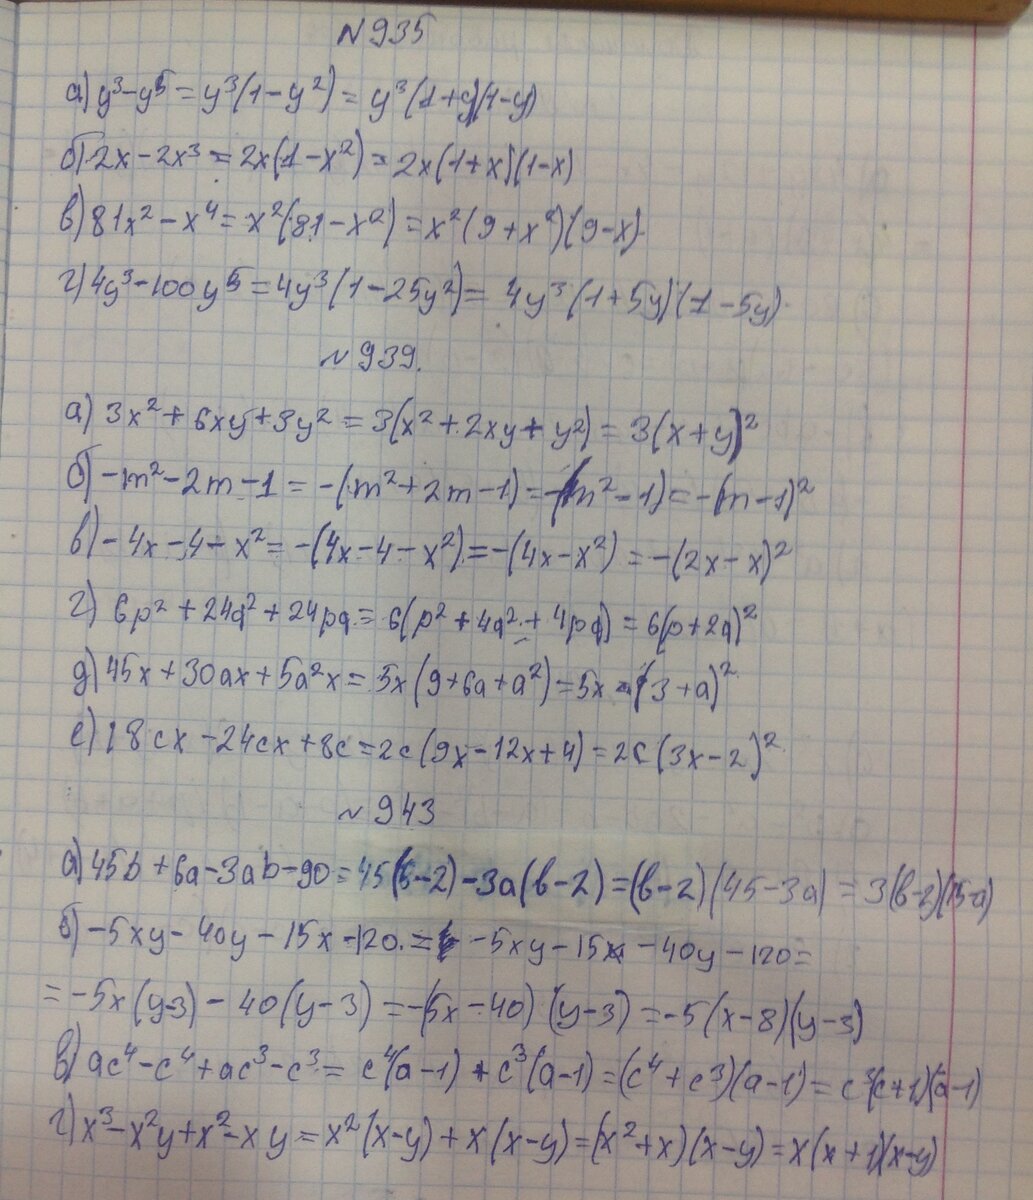 №935
а) y³-y⁵=y³(1-y²)=y³(1+y)(1-y)
б) 2x-2x³=2x(1-x²)=2x(1+x)(1-x)
в) 81x²-x⁴=x²(81-x²)=x²(9+x²)(9-x)
г) 4y³-100y⁵=4y³(1-25y²)=4y³(1+5y)(1-5y)
№939.
а) 3x²+6xy+3y²=3(x²+2xy+y²)=3(x+y)²
б) -m²-2m-1=-(m²+2m-1)=-(m²-1)=-(m-1)²
в) -4x-4-x²=-(4x-4-x²)=-(4x-x²)=-(2x-x)²
г) 6p²+24q²+24pq=6(p²+4q²+4pq)=6(p+2q)²
д) 45x+30ax+5a²x=5x(9+6a+a²)=5x(3+a)²
е) 18cx-24cx+8c=2c(9x-12x+4)=2c(3x-2)²
№943
а) 45b+6a-3ab-90=45(b-2)-3a(b-2)=(b-2)(45-3a)=3(b-2)(15-a)
б) -5xy-40y-15x-120=-5xy-15x-40y-120=
=-5x(y-3)-40(y-3)=-(5x-40)(y-3)=-5(x-8)(y-3)
в) ac⁴-c⁴+ac³-c³=c⁴(a-1)+c³(a-1)=(c⁴+c³)(a-1)=c³(c+1)(a-1)
г) x³-x²y+x²-xy=x²(x-y)+x(x-y)=(x²+x)(x-y)=x(x+1)(x-y)